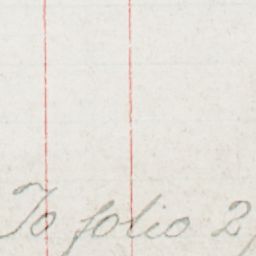 To folio 2